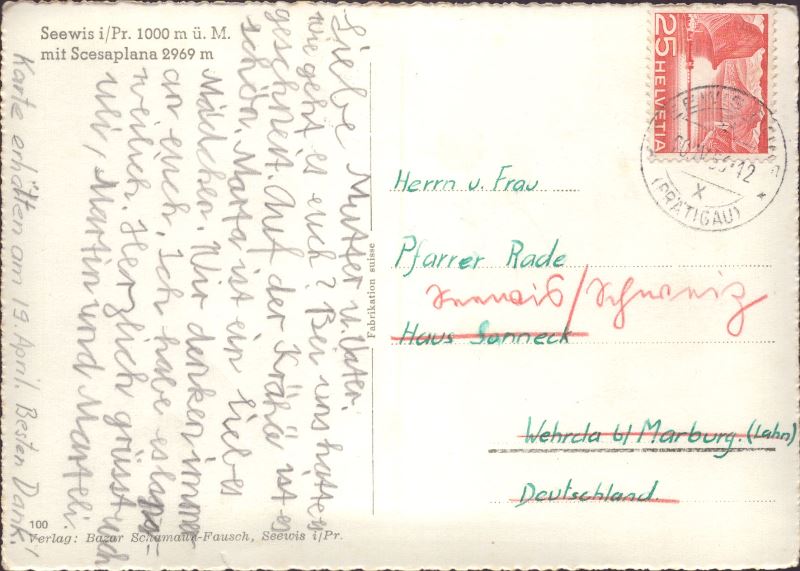 Seewis i/Pr. 1000 m ü. M.
mit Scesaplana 2969 m
Liebe Mutter u. Vater.
wie geht es euch? Bei uns hat es
geschneit. Auf der Krähä ist es
schön. Marta ist ein liebes
Mädchen. Wir denken immer
an euch. Ich habe es
weilich. Herzlich grüsst euch
Uli, Martin und Marteli.
Karte erhalten am 19. April. Besten Dank!
100
Verlag: Bazar Schamaun-Fausch, Seewis i/Pr.
Fabrikation suisse
25
HELVETIA
SEEWIS
12
X
(PRÄTIGAU)
Herrn u. Frau
Pfarrer Rade
Seewis/Schweiz
Haus Sonneck
Wehrda b/ Marburg. (Lahn)
Deutschland.